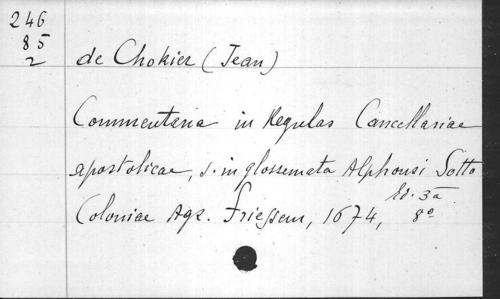 246
85
2
de Chokier (Jean)
Commentaria in Regulas Cancellariae
apostolicae, s. in glossemata Alphonsi Sotto
Ed. 3a.
Coloniae Agr. Friessem, 1674, 8o